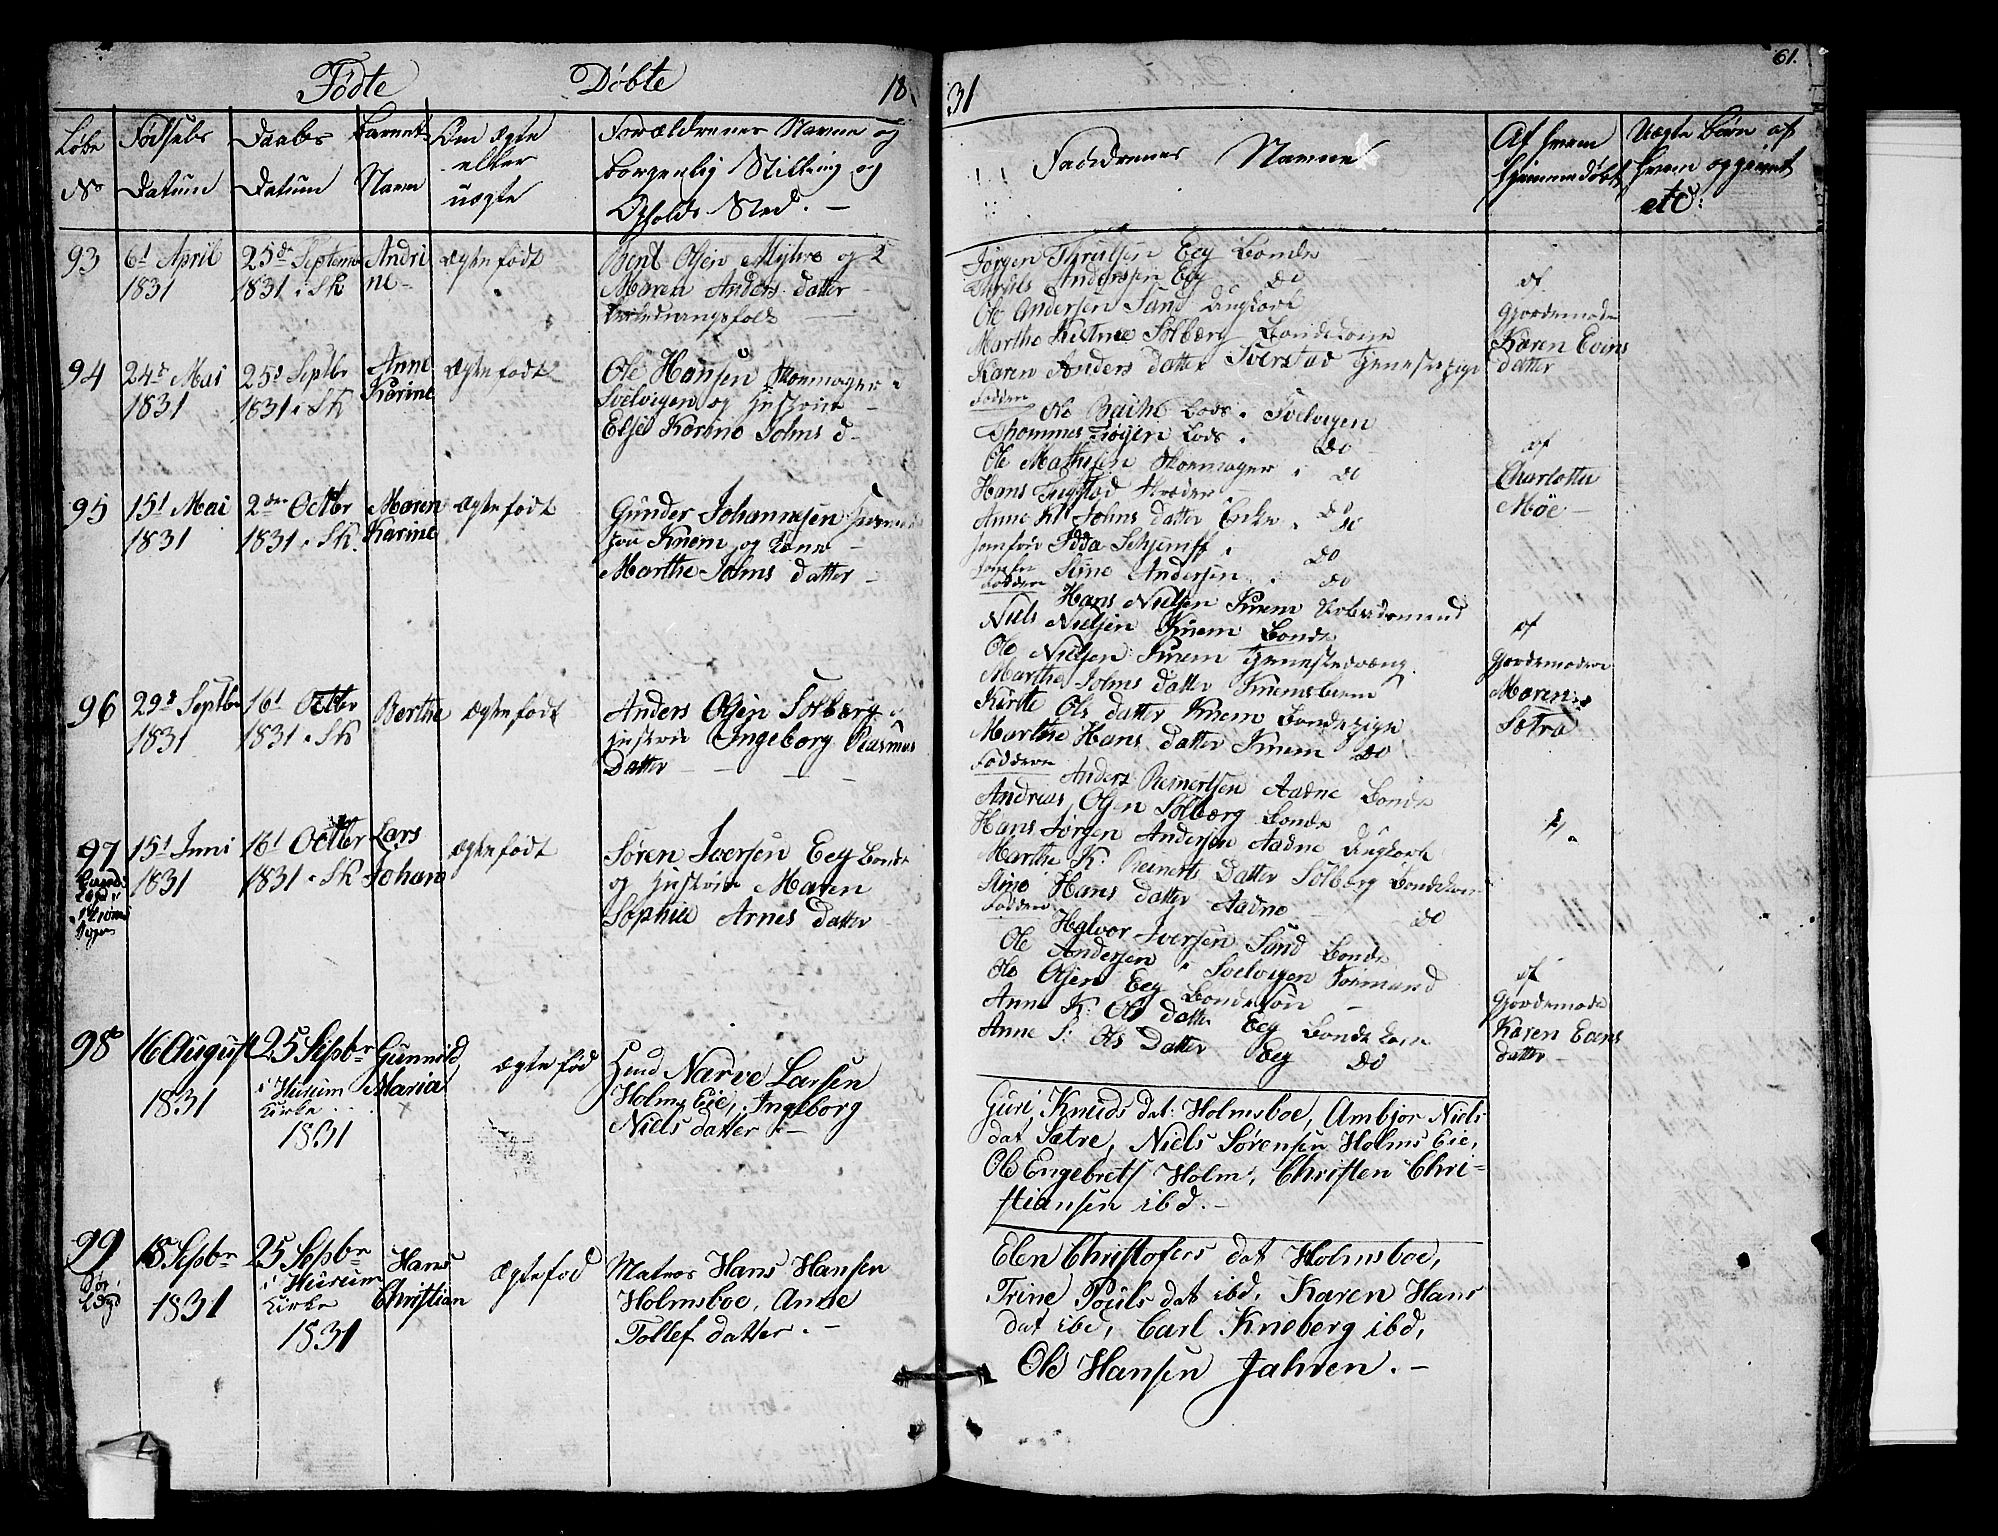 Fødte Døbte 18
31
61.
Løbe No
Fødsels Datum
Daabs Datum
Barnets Navn
Om ægte eller uægte
Forældrenes Navne og
borgerlig Stilling og
Opholds Sted. —
Faddrenes Navne
Af hvem hjemmedøbt
Uægte børn af
hvem opgivet
etc:
93
6t April
1831
25de Septembr
1831 i Sk
Andri
ne
Ægte født
Bent Olsen Myhre og
Maren Anders datter
Jørgen Thrulsen Eeg Bonde
Thruls Anderssen Eeg do
Ole Andersen Sand Ungkarl
Marthe Kirstine Solberg Bondekone
Karen Anders datter Sverstad Tjenestepige
af
Gjordemode
Karen Evens
datter
94
24d Mai
1831
25d Septbr
1831 i Sk
Anne
Karine
Ægte født
Ole Hansen Skomager i
Svelvigen og Hustrue
Else Karine Johns d
Faddere
Ole Bache Lods i Svelvigen
Thommes Lods i do
Ole Mathisen Skomager i do
Hans do
Anne K. Johns datter Enke i do
Jomfrue i do
Stine Andersen i do
af
Charlotte
Møe —
95
15t Mai
1831
2den Octbr
1831 i Sk.
Maren
Karine
Ægte født
Gunder Johannesen
paa Knem og Kone
Marthe Johns datter
Faddere
Hans Nielsen Knem Arbeidsmand
Niels Nielsen Knem Bonde
Ole Nielsen Knem Tjenestedreng
Marthe Johns datter
Kirstie Ols datter Knem Bondepige
Marthe Hans datter Knem do
af
Gjordemodere
Maren
Sætra
96
29d Septbr
1831
16t Octbr
1831 i Sk
Berthe
Ægte født
Anders Olsen Solberg og
Hustrue Ingeborg Rasmus
Datter
Faddere
Anders Reinertsen Aadne Bonde
Andreas Olsen Solberg Bonde
Hans Jørgen Andersen Aadne Ungkarl
Marthe K. Reinerts Datter Solberg Bondekone
Stine Hans datter Aadne do
97
15t Juni
1831
16t Octbr
1831 i Sk
Lars
Johan
Ægte født
Søren Iversen Eeg Bonde
og Hustrue Maren
Sophie Arnes datter
Faddere
Halvor Iversen Sand Bonde
Ole Andersen i Svelvigen
Ole Olsen Eeg Bondesøn
Anne K. Ols datter Eeg Bondekone
Anne S. Ols Datter Eeg do
af
Gjordemode
Karen Evens
datter
98
16 August
1831
25 Sepbr
i Hurum
Kirke
1831
Gunnild
Maria
Ægte fød
Narve Larsen
Holms Eie, Ingeborg
Niels datter. —
Guri Knuds dat: Holmsboe, Ambjør Niels
dat Sætre, Niels Sørensen Holms Eie,
Ole Engebrets Holm, Christen Chri-
stiansen ibd. —
99
15 Sepbr
1831
25 Sepbr
i Hurum
Kirke
1831
Hans
Christian
Ægte fød
Matros Hans Hansen
Holmsboe, Anne
Tollef datter. —
Elen Christofers dat Holmsboe,
Trine Pouls dat ibd, Karen Hans
dat ibd, Carl Knieberg ibd,
Ole Hansen Jahren. —